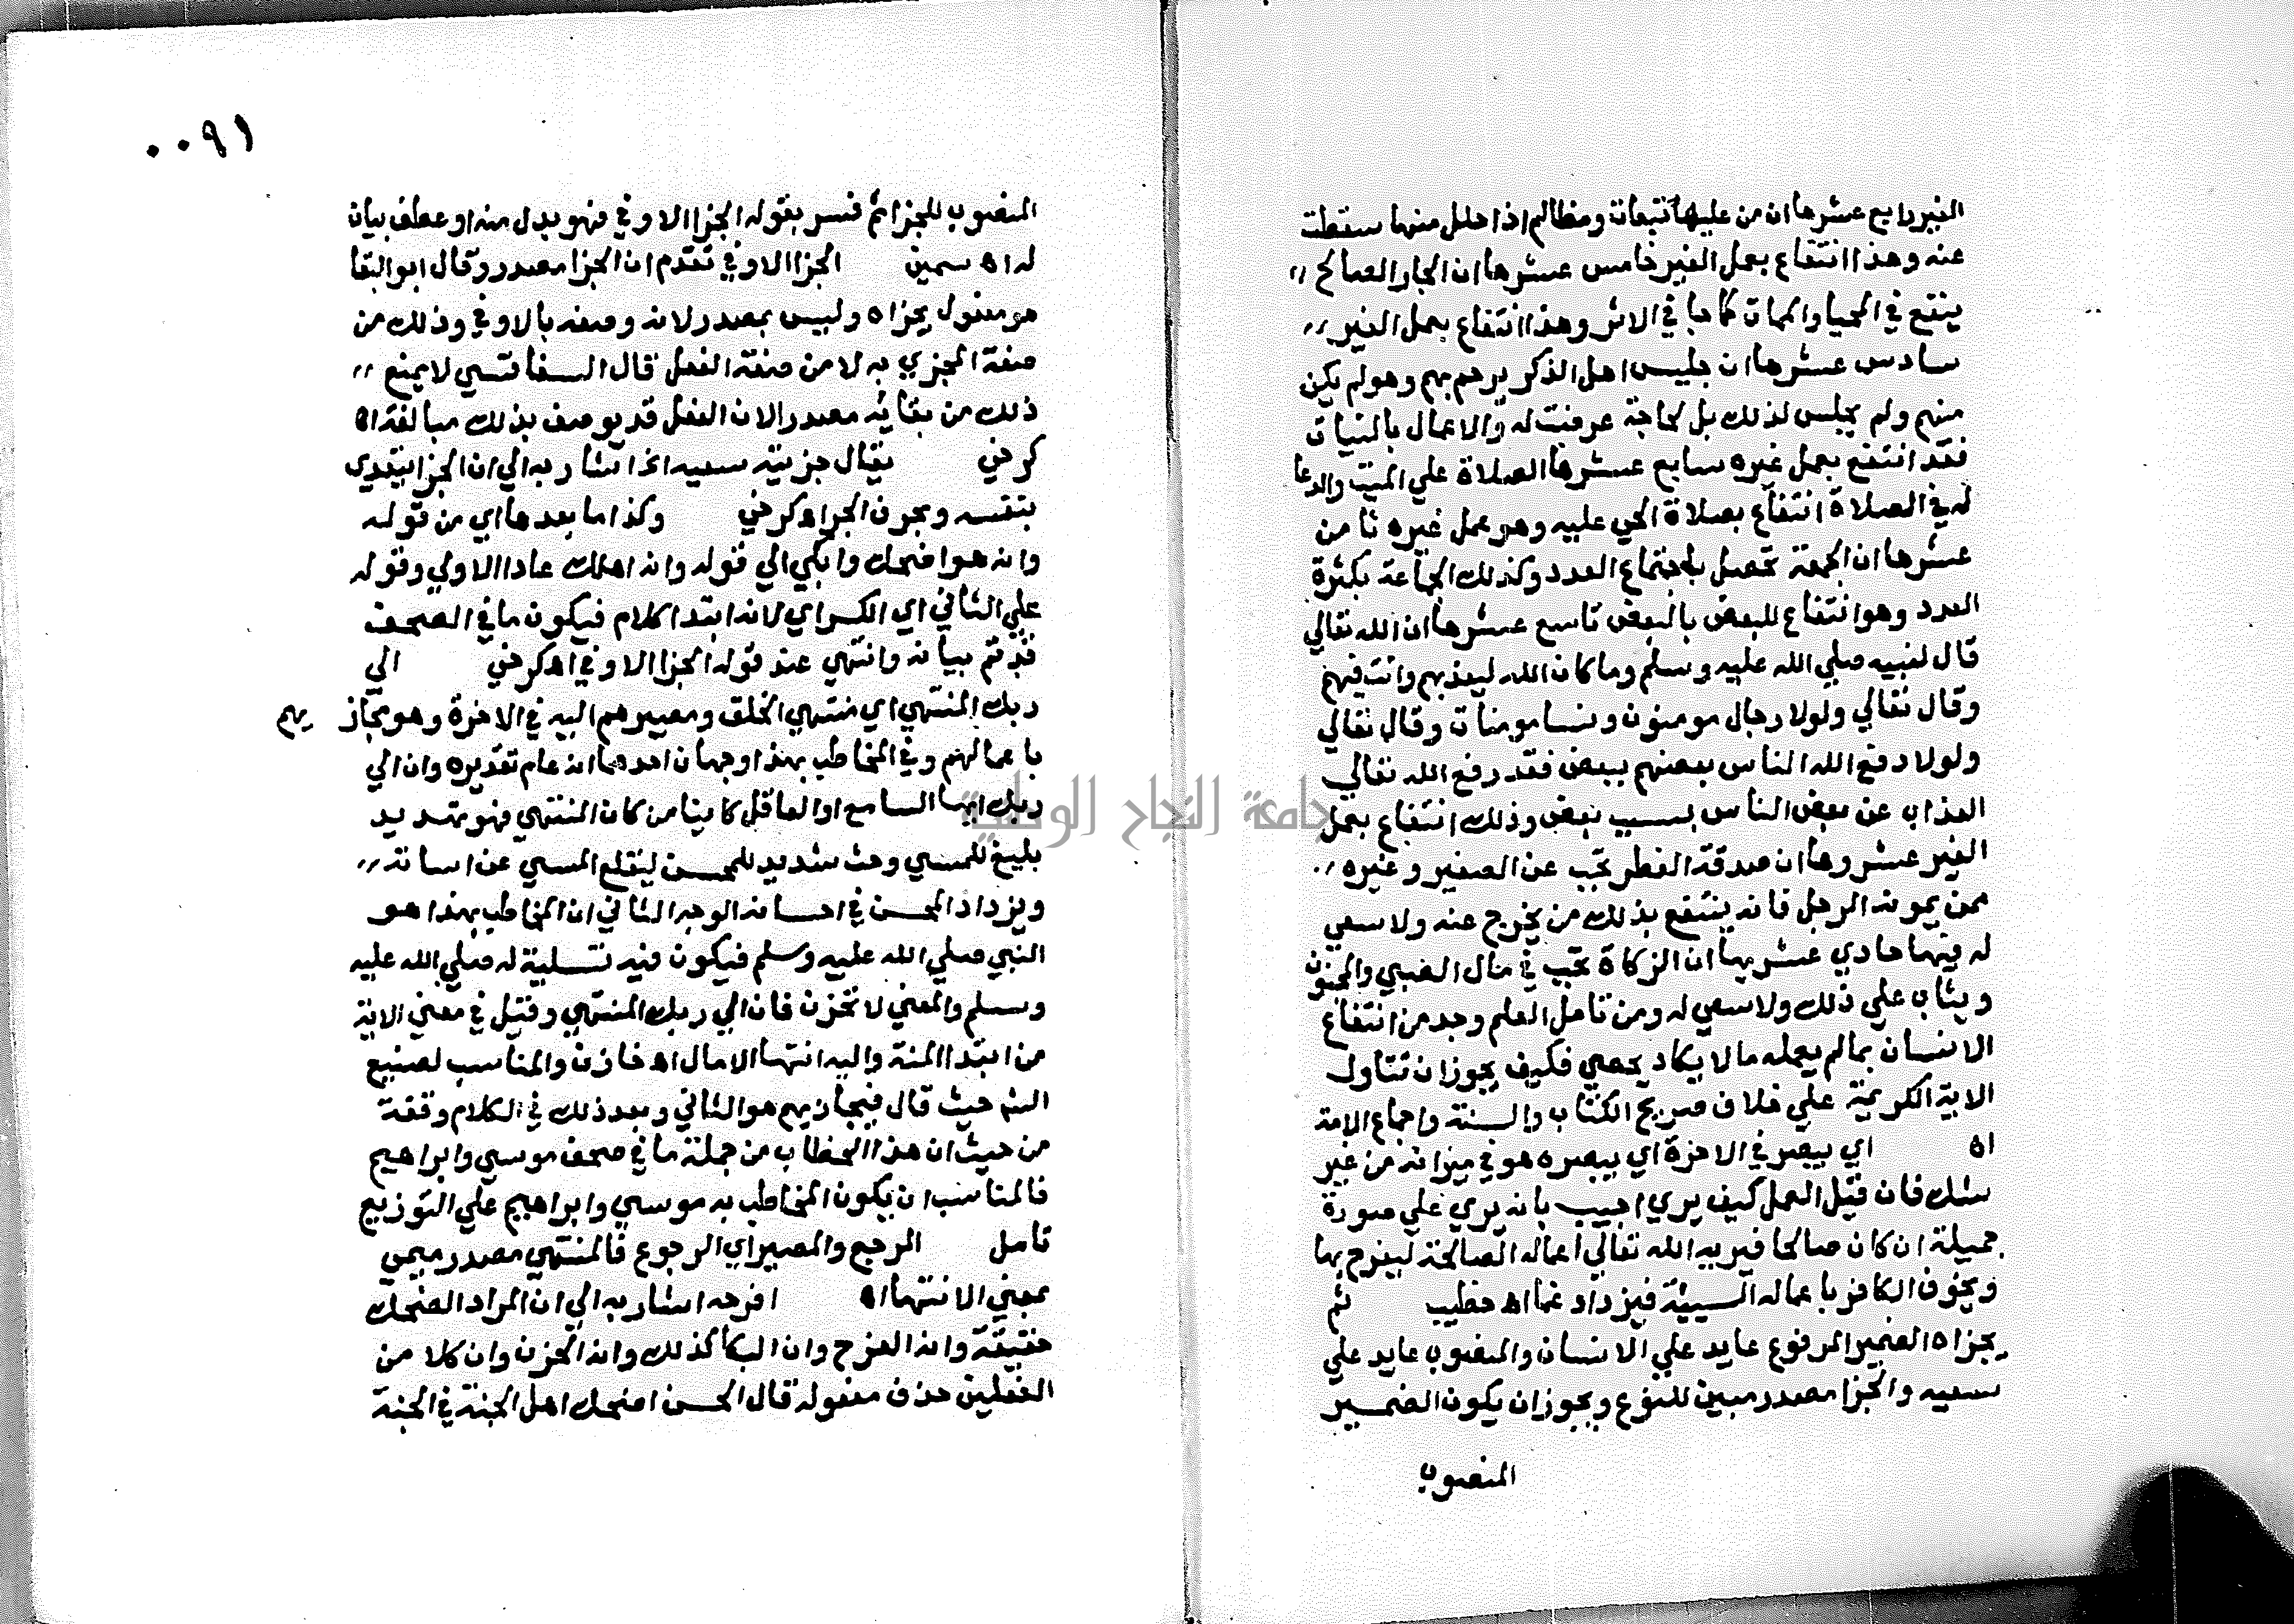 الغير رابع عشرها ان من عليها تبعات ومظالم اذا حلل منها سقطت
عنه وهذا انتفاع بعمل الغير خامس عشرها ان الجار الصالح
ينفع في المحيا والممات كما جا في الاثر وهذا انتفاع بعمل الغير
سادس عشرها ان جليس اهل الذكر يرحم بهم وهو لم يكن
منهم ولم يجلس لذلك بل لحاجة عرضت له والاعمال بالنيات
فقد انتفع بعمل غيره سابع عشرها الصلاة علي الميت والدعا
له في الصلاة انتفاع بصلاة الحي عليه وهو عمل غيره ثامن
عشرها ان الجمعة تحصل باجتماع العدد وكذلك الجماعة بكثرة
العدد وهو انتفاع للبعض بالبعض تاسع عشرها ان الله تعالي
قال لنبيه صلي الله عليه وسلم وما كان الله ليعذبهم وانت فيهم
وقال تعالي ولولا رجال مومنون ونسا مومنات وقال تعالي
ولولا دفع الله الناس بعضهم ببعض فقد رفع الله تعالي
العذاب عن بعض الناس بسبب بعض وذلك انتفاع بعمل
الغير عشروها ان صدقة الفطر تجب عن الصغير وغيره
ممن يمونه الرجل فانه ينتفع بذلك من يخرج عنه ولا سعي
له فيها حادي عشريها ان الزكاة تجب في مال الصبي والمجنون
ويثاب علي ذلك ولا سعي له ومن تامل العلم وجد من انتفاع
الانسان بمالم يعمله مالا يكاد يحصي فكيف يجوز ان تتاول
الاية الكريمة علي خلاف صريح الكتاب والسنة واجماع الامة
اه اي يبصر في الاخرة اي يبصره هو في ميزانه من غير
شك فان قيل العمل كيف يري اجيب بانه يري علي صورة
جميلة ان كان صالحا فيريه الله تعالي اعماله الصالحة ليفرح بها
ويخوف الكافر باعماله السيئة فيزداد غما اه خطيب ثم
يجزاه الضمير المرفوع عايد علي الانسان والمنصوب عايد علي
سعيه والجزا مصدر مبين للنوع ويجوز ان يكون الضمير
المنصوب
٠٠٩١
المنصوب للجزا ثم فسر بقوله الجزا الاوفي فهو بدل منه او عطف بيان
له اه سمين الجزا الاوفي تقدم ان الجزا مصدر وقال ابو البقا
هو مفعول يجزاه وليس بمصدر لانه وصفه بالاوفي وذلك من
صفة المجزي به لا من صفة الفعل قال السفاقسي لا يمنع
ذلك من بقائه مصدرا لان الفعل قد يوصف بذلك مبالغة اه
كرخي يقال جزيته سعيه اخ اشار به الي ان الجزا يتعدي
بنفسه وبحرف الجر اه كرخي وكذا ما بعدها اي من قوله
وانه هو اضحك وابكي الي قوله وانه اهلك عادا الاولي وقوله
علي الثاني اي الكسر اي لانه ابتدا كلام فيكون ما في الصحف
قد تم بيانه وانتهي عند قوله الجزا الاوفي اه كرخي الي
ربك المنتهي اي منتهي الخلق ومصيرهم اليه في الاخرة وهو مجازيهم
باعمالهم وفي المخاطب بهذا وجهان احدهما انه عام تقديره وان الي
ربك ايها السامع او العاقل كاينا من كان المنتهي فهو تهديد
بليغ للمسي وحث شديد للمحسن ليقلع المسي عن اساته
ويزداد المحسن في احسانه الوجه الثاني ان المخاطب بهذا هو
النبي صلي الله عليه وسلم فيكون فيه تسلية له صلي الله عليه
وسلم والمعني لا تحزن فان الي ربك المنتهي وقيل في معني الاية
من ابتدا المنة واليه انتها الامال اه خازن والمناسب لصنيع
الشم حيث قال فيجازيهم هو الثاني وبعد ذلك في الكلام وقفة
من حيث ان هذا الخطاب من جملة ما في صحف موسي وابراهيم
فالمناسب ان يكون المخاطب به موسي وابراهيم علي التوزيع
تامل الرجع والمصير اي الرجوع فالمنتهي مصدر ميمي
بمعني الانتها اه افرحه اشار به الي ان المراد الضحك
حقيقة وانه الفرح وان البكا كذلك وانه الحزن وان كلا من
الفعلين حذف مفعوله قال الحسن اضحك اهل الجنة في الجنة
جامعة النجاح الوطنية